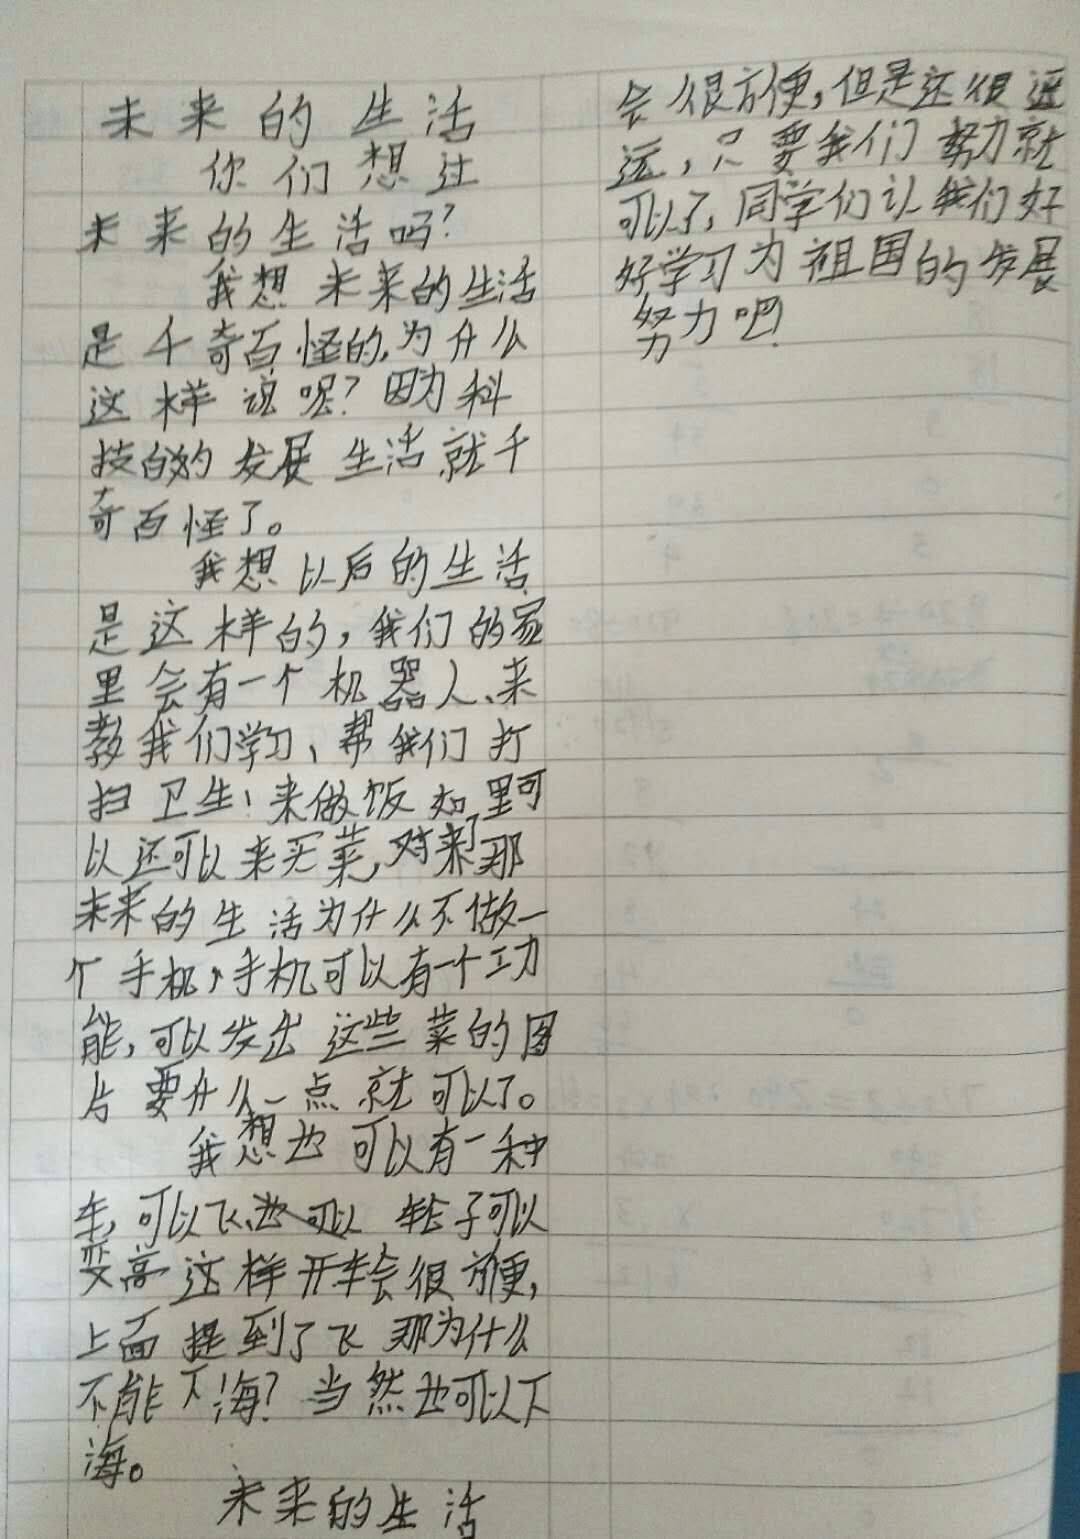 未来的生活
你们想过
未来的生活吗?
我想未来的生活
是千奇百怪的,为什么
这样说呢?因为科
技的发展生活就千
奇百怪了。
我想以后的生活
是这样的,我们的家
里会有一个机器人、来
教我们学习、帮我们打
扫卫生!来做饭如果可
以还可以来买菜,对了那
未来的生活为什么不做一
个手机,手机可以有一个功
能,可以发出这些菜的图
片要什么一点就可以了。
我想也可以有一种
车,可以飞也可以轮子可以
变高这样开车会很方便,
上面提到了飞那为什么
不能下海?当然也可以下
海。
未来的生活
会很方便,但是还很遥
远,只要我们努力就
可以了,同学们让我们好
好学习为祖国的发展
努力吧!